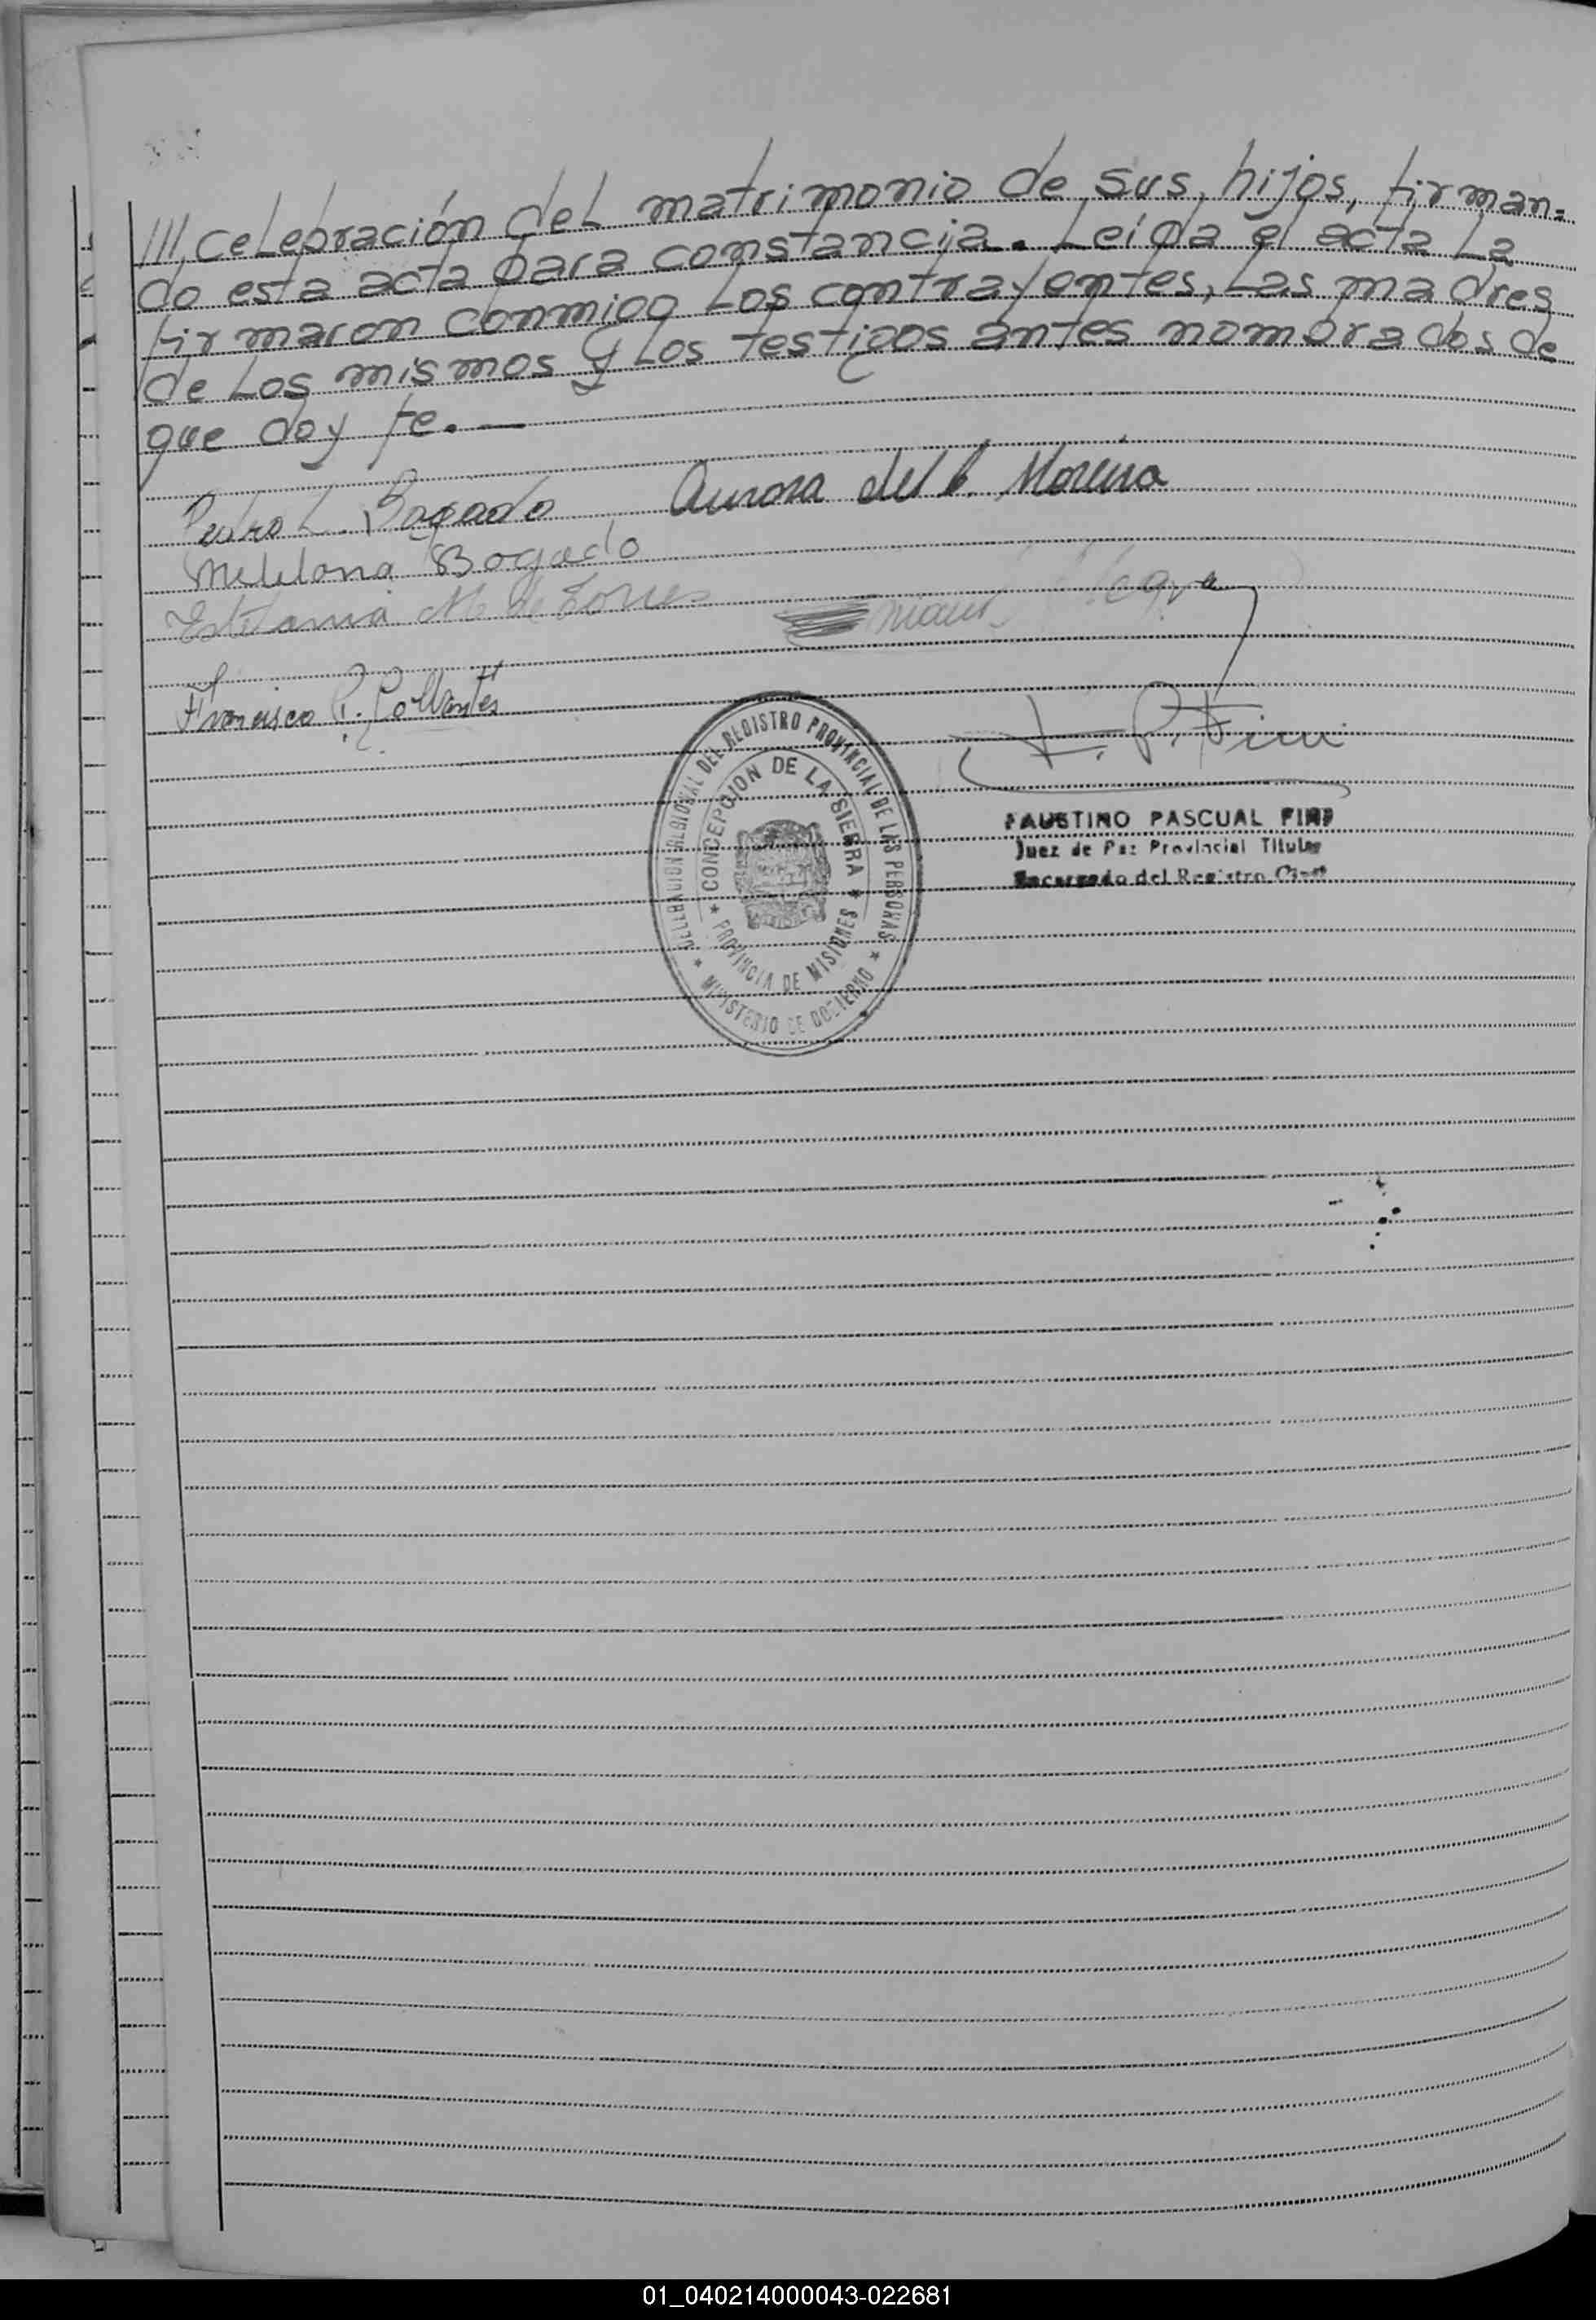 /// celebración del matrimonio de sus hijos, firman-
do esta acta para constancia. Leída el acta la
firmaron conmigo los contrayentes, las madres
de los mismos y los testigos antes nombrados de
que doy fe. —
Pedro L. Bogado Aurora del C. Moreira
Melitona Bogado
Estefania M. de Torres
Francisco P. Collantes
F. P. Fini
DELEGACION REGIONAL DEL REGISTRO PROVINCIAL DE LAS PERSONAS
* MINISTERIO DE GOBIERNO *
CONCEPCION DE LA SIERRA
* PROVINCIA DE MISIONES *
FAUSTINO PASCUAL FINI
Juez de Paz Provincial Titular
Encargado del Registro Civil
01_040214000043-022681